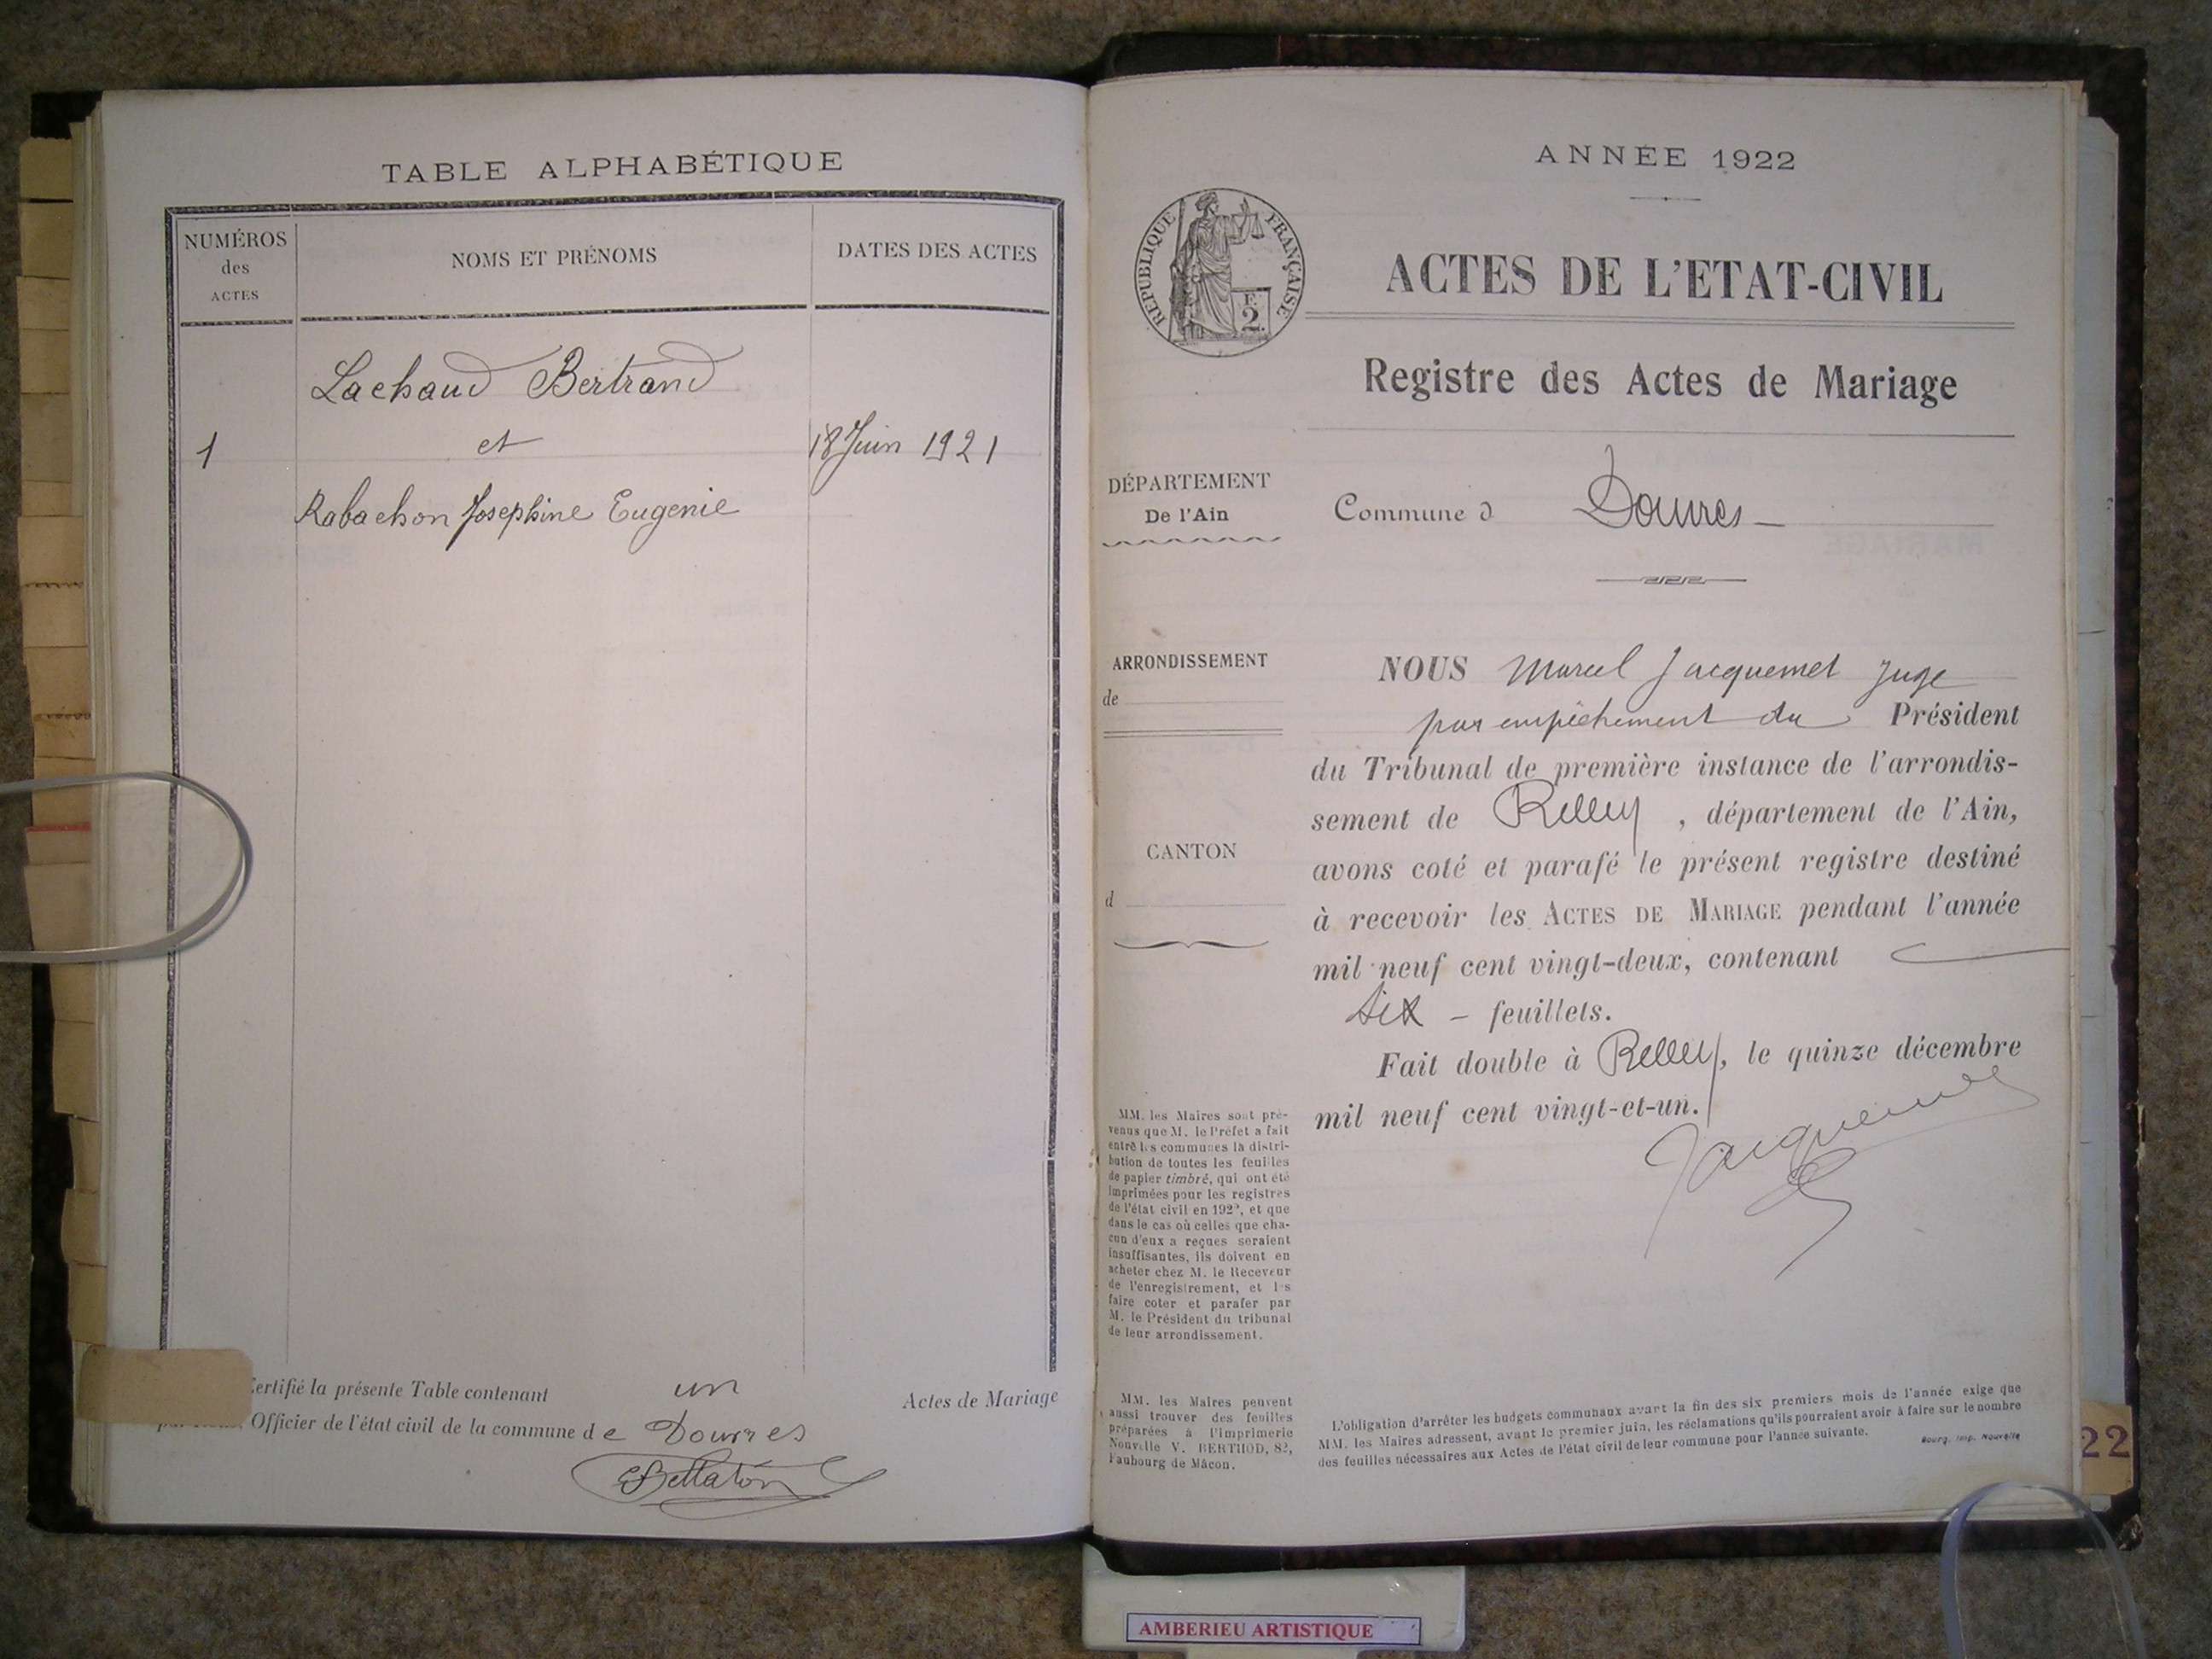 TABLE ALPHABÉTIQUE
NUMÉROS
des
ACTES
NOMS ET PRÉNOMS
DATES DES ACTES
Lachaud Bertrand
1
et
18 Juin 1921
Rabachon Josephine Eugenie
Certifié la présente Table contenant un Actes de Mariage
Officier de l'état civil de la commune de Douvres
ANNÉE 1922
RÉPUBLIQUE FRANÇAISE
F.
2
ACTES DE L'ETAT-CIVIL
Registre des Actes de Mariage
DÉPARTEMENT
De l'Ain
Commune d Douvres
ARRONDISSEMENT
de
CANTON
d
NOUS Marcel Jacquemet Juge
par empêchement du Président
du Tribunal de première instance de l'arrondis-
sement de Belley, département de l'Ain,
avons coté et parafé le présent registre destiné
à recevoir les ACTES DE MARIAGE pendant l'année
mil neuf cent vingt-deux, contenant
six - feuillets.
Fait double à Belley, le quinze décembre
mil neuf cent vingt-et-un.
Jacquemet
MM. les Maires sont pré-
venus que M. le Préfet a fait
entre les communes la distri-
bution de toutes les feuilles
de papier timbré, qui ont été
imprimées pour les registres
de l'état civil en 192², et que
dans le cas où celles que cha-
cun d'eux a reçues seraient
insuffisantes, ils doivent en
acheter chez M. le Receveur
de l'enregistrement, et les
faire coter et parafer par
M. le Président du tribunal
de leur arrondissement.
MM. les Maires peuvent
aussi trouver des feuilles
préparées à l'Imprimerie
Nouvelle V. BERTHOD, 82,
Faubourg de Mâcon.
L'obligation d'arrêter les budgets communaux avant la fin des six premiers mois de l'année exige que
MM. les Maires adressent, avant le premier juin, les réclamations qu'ils pourraient avoir à faire sur le nombre
des feuilles nécessaires aux Actes de l'état civil de leur commune pour l'année suivante.
Bourg, Imp. Nouvelle
22
AMBERIEU ARTISTIQUE